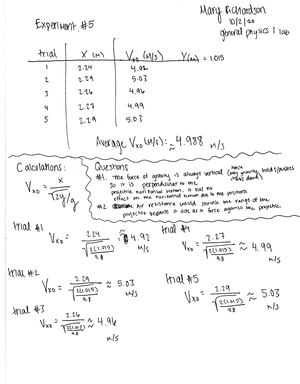 Mary Richardson
10/2/20
general physics 1 lab
Experiment #5
trial X (m) Vxo (m/s) Y(m) = 1.015
1 2.24 4.92
2 2.29 5.03
3 2.26 4.96
4 2.27 4.99
5 2.29 5.03
Average Vxo (m/s): ≈ 4.988 m/s
Calculations:
Vxo = x / √2y/g
Questions
#1. The force of gravity is always vertical
so it is perpendicular to the
projectile horizontal motion. it has no
effect on the horizontal motion due to the
#2 air resistance would shrink the range of the
projectile because it acts as a force against the projectile
trial #1 Vxo = 2.24 / √2(1.015)/9.8 ≈ 4.92 m/s
trial #4
Vxo = 2.27 / √2(1.015)/9.8 ≈ 4.99 m/s
trial #2
Vxo = 2.29 / √2(1.015)/9.8 ≈ 5.03 m/s
trial #5
Vxo = 2.29 / √2(1.015)/9.8 ≈ 5.03 m/s
trial #3
Vxo = 2.26 / √2(1.015)/9.8 ≈ 4.96 m/s